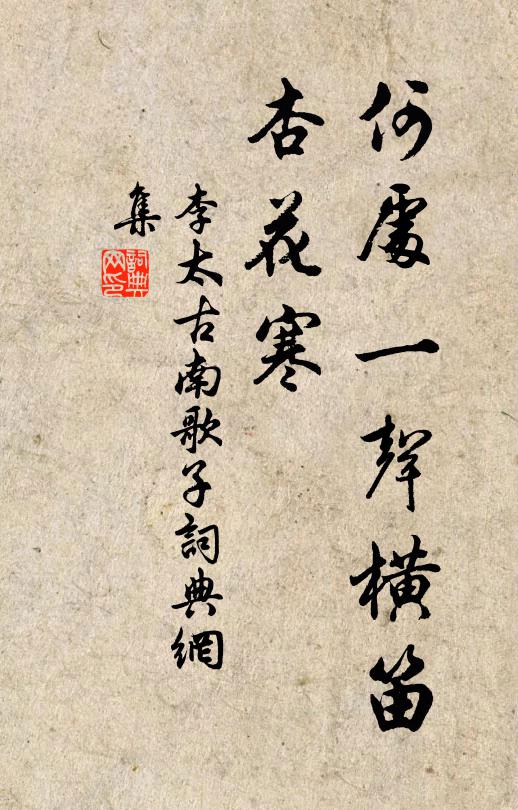 何處一聲橫笛
杏花寒
李太古南歌子詞典網
集
詞典
网印